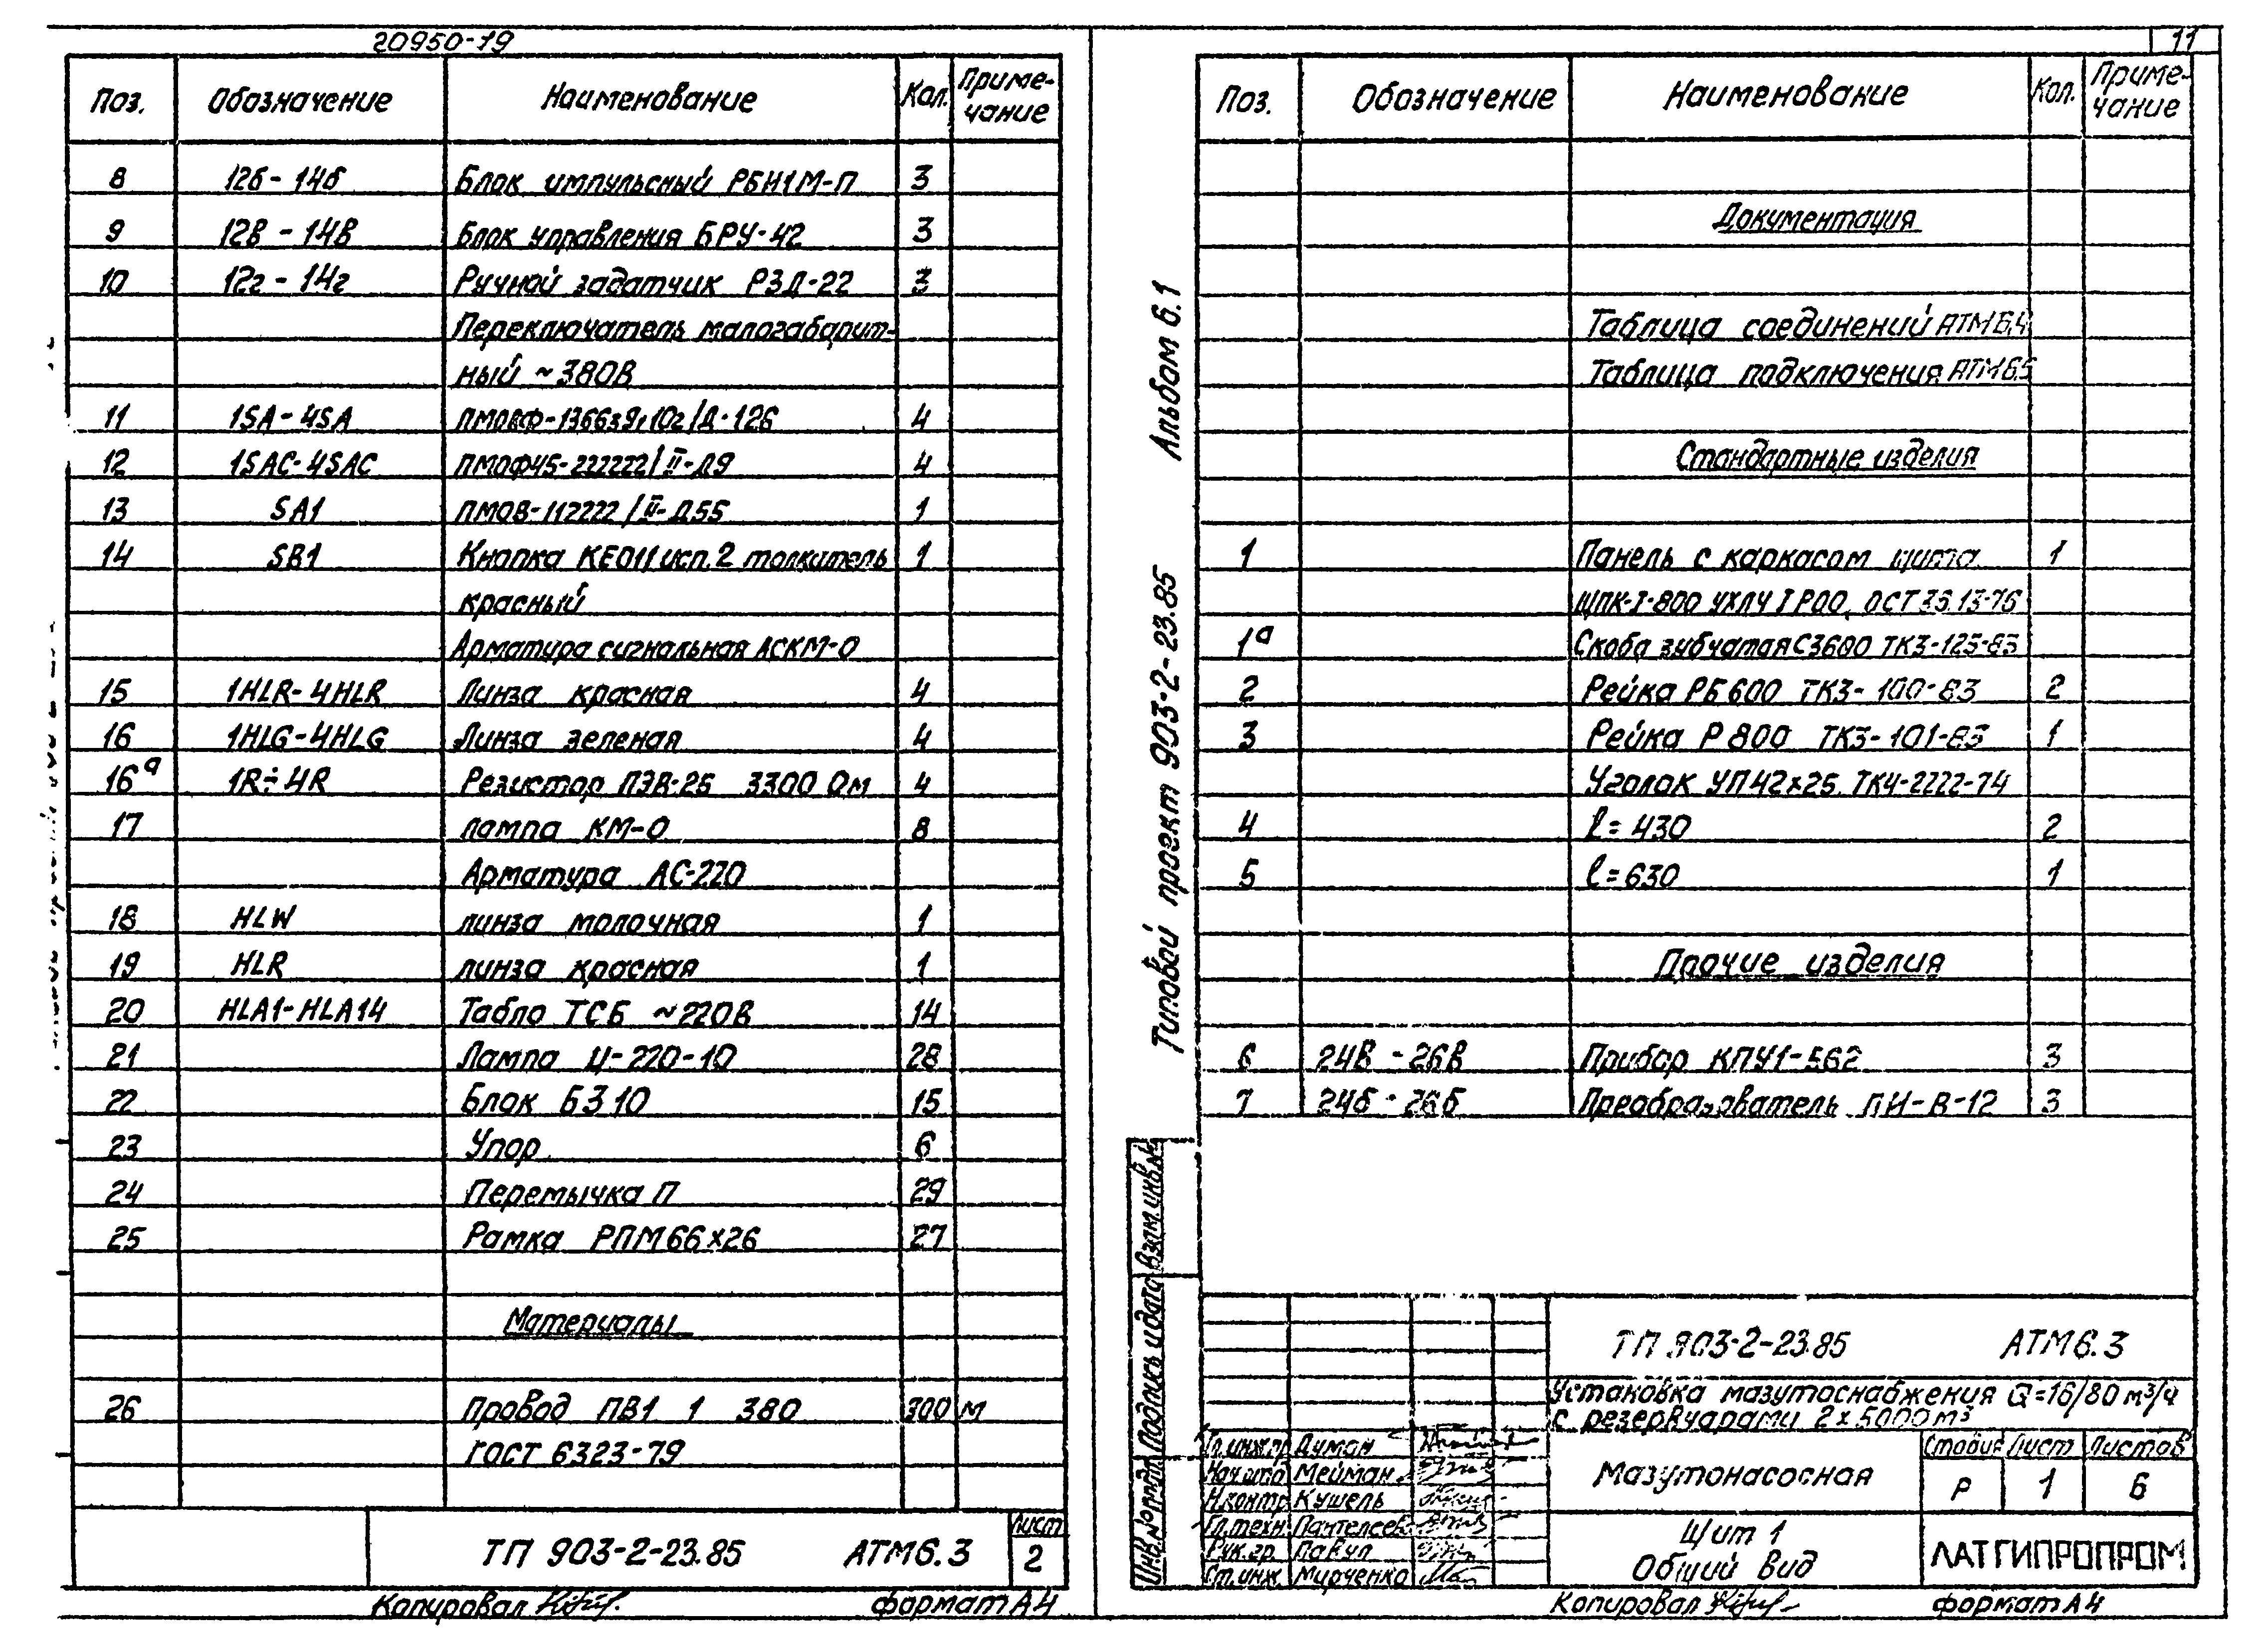 20950-19
Поз. Обозначение Наименование Кол. Приме-
чание
8 12б-14б Блок импульсный РБИ1М-П 3
9 12в-14в Блок управления БРУ-42 3
10 12г-14г Ручной задатчик РЗД-22 3
Переключатель малогабарит-
ный ~380В
11 1SA-4SA 4
12 1SAC-4SAC ПМОФ45-222222/II-Д9 4
13 SA1 ПМОВ-112222/II-Д55 1
14 SB1 Кнопка КЕ011 исп.2 толкатель 1
красный
Арматура сигнальная АСКМ-0
15 1HLR-4HLR Линза красная 4
16 1HLG-4HLG Линза зеленая 4
16а 1R÷4R Резистор ПЭВ-25 3300 Ом 4
17 лампа КМ-0 8
Арматура АС-220
18 HLW линза молочная 1
19 HLR линза красная 1
20 HLA1-HLA14 Табло ТСБ ~220В 14
21 Лампа Ц-220-10 28
22 Блок БЗ10 15
23 Упор 6
24 Перемычка П 29
25 Рамка РПМ66х26 27
Материалы
26 Провод ПВ1 1 380 300 м
ГОСТ 6323-79
ТП 903-2-23.85 АТМ6.3 Лист
2
Копировал формат А4
11
Альбом 6.1
Типовой проект 903-2-23.85
Поз. Обозначение Наименование Кол. Приме-
чание
Документация
Таблица соединений АТМ6.4
Таблица подключения АТМ6.5
Стандартные изделия
1 Панель с каркасом щита 1
ЩПК-I-800 УХЛ4 IР00, ОСТ 36.13-76
1а Скоба зубчатая СЗ600 ТК3-125-83
2 Рейка РБ600 ТК3-100-83 2
3 Рейка Р800 ТК3-101-83 1
Уголок УП42х25 ТК4-2222-74
4 l=430 2
5 l=630 1
Прочие изделия
6 24в-26в Прибор КПУ1-562 3
7 24б-26б Преобразователь ПИ-В-12 3
Взам.инв.№
Подпись и дата
Инв.№ подл.
ТП 903-2-23.85 АТМ6.3
Установка мазутоснабжения Q=16/80 м³/ч
с резервуарами 2х5000м³
Гл.инж.пр. Думан
Нач.отд. Мейман
Н.контр. Кушель
Гл.техн. Пантелеев
Рук.гр. Павул
Ст.инж. Мирченко
Мазутонасосная
Стадия Лист Листов
Р 1 6
Щит 1
Общий вид
ЛАТГИПРОПРОМ
Копировал формат А4